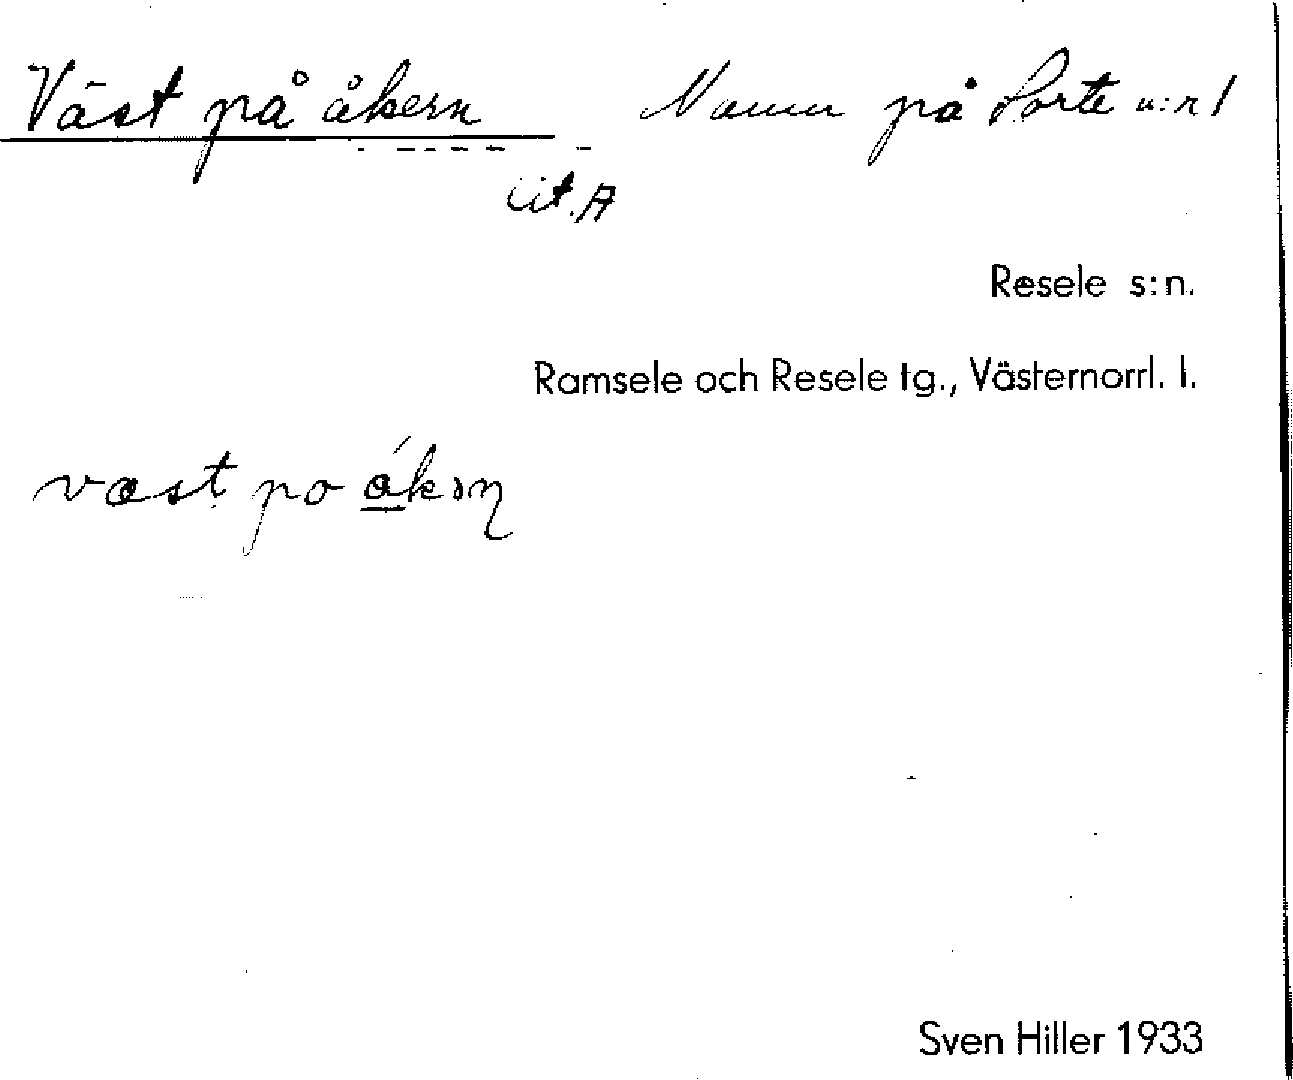 Väst på åkern Namn på Porte n:r 1
cit. A
Resele s:n.
Ramsele och Resele tg., Västernorrl. l.
væst po ákəɳ
Sven Hiller 1933